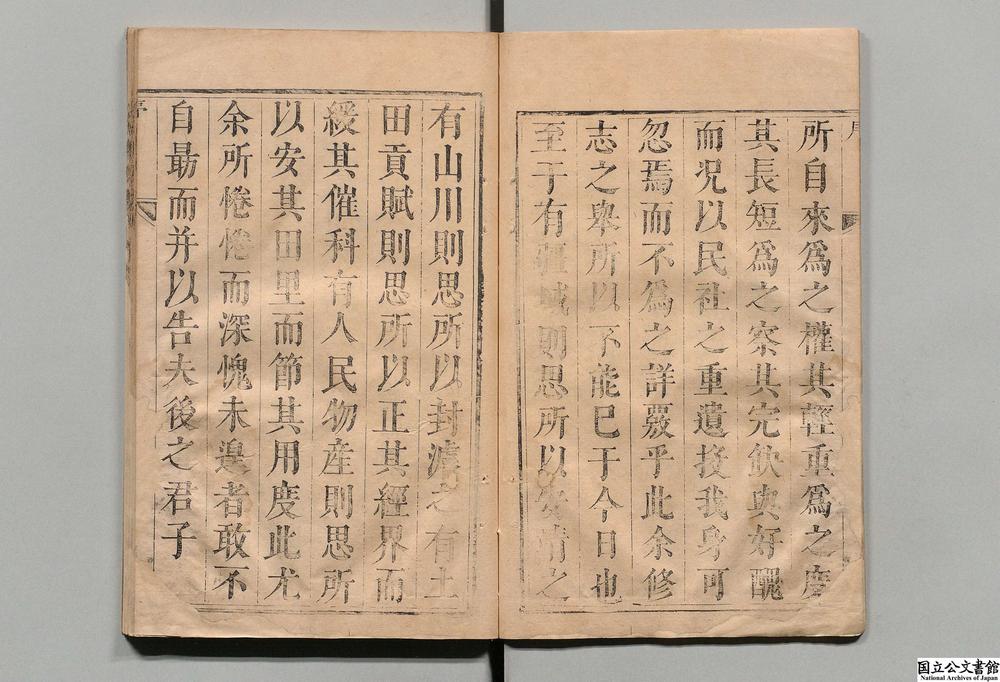 序
所自來爲之權其輕重爲之度
其長短爲之察其完飲與好醜
而况以民社之重遺投我身可
忽焉而不爲之詳覈乎此余修
志之舉所以不能已于今日也
至于有疆域則思所以安清之
有山川則思所以封濬之有土
田貢賦則思所以正其經界而
緩其催科有人民物産則思所
以安其田里而節其用度此尤
余所惓惓而深愧未遑者敢不
自勗而并以告夫後之君子
序
国立公文書館
National Archives of Japan